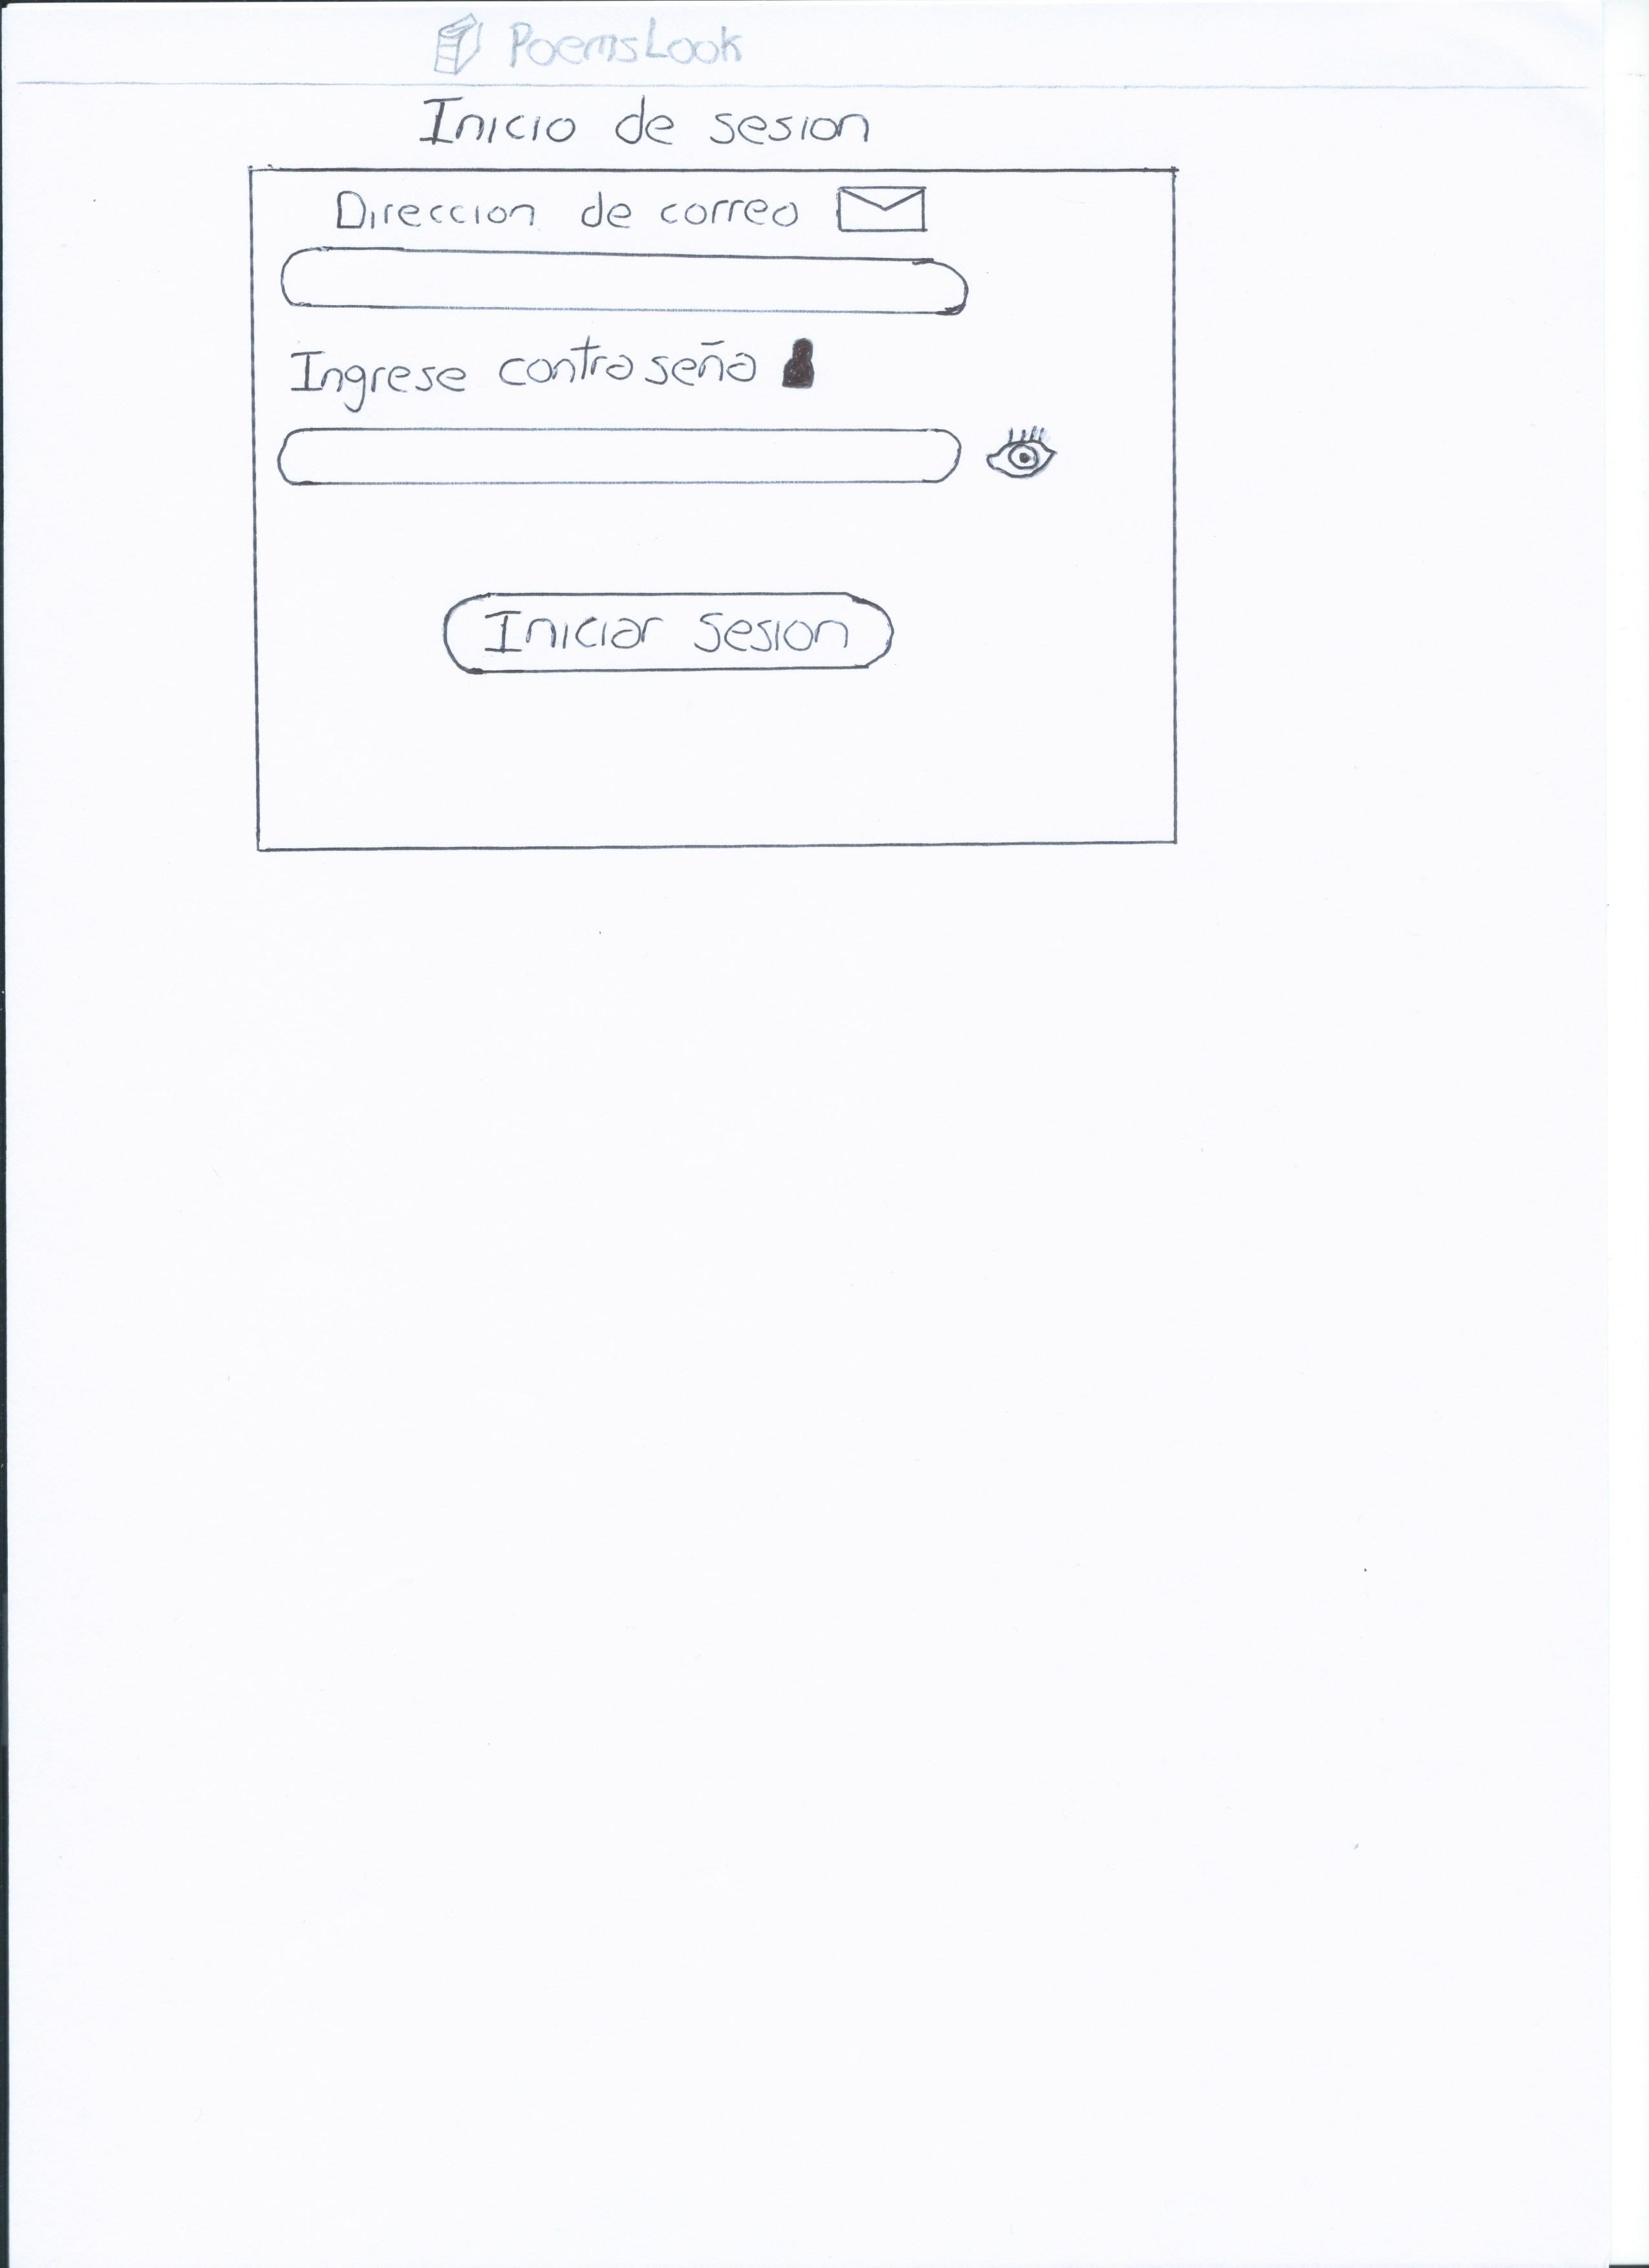 PoemsLook
Inicio de sesion
Direccion de correo
Ingrese contraseña
Iniciar sesion